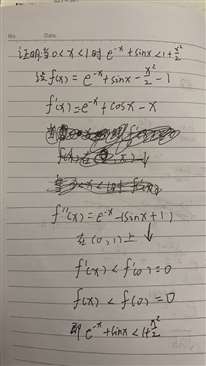 No.
Date
证明当0<x<1时 e^{-x}+sinx<1+\frac{x^2}{2}
设f(x)=e^{-x}+sinx-\frac{x^2}{2}-1
f'(x)=e^{-x}+cosx-x
f(x)在(0,x)↓
f''(x)=e^{-x}-(sinx+1)
在(0,1)上↓
f'(x)<f'(0)=0
f(x)<f(0)=0
即e^{-x}+sinx<1+\frac{x^2}{2}